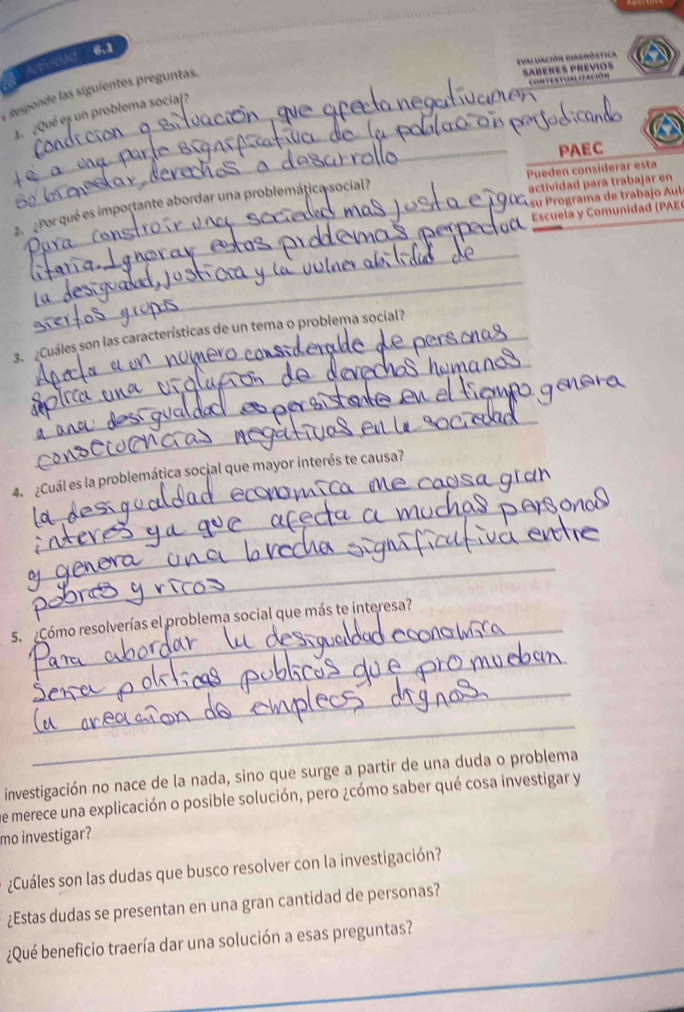 Actividad 6.1
EVALUACIÓN DIAGNÓSTICA
SABERES PREVIOS
CONTEXTUALIZACIÓN
Responde las siguientes preguntas.
1. ¿Qué es un problema social?
condicion o situacion que afecta negativamen
te a una parte significativa de la poblacion perjudicando
so bienestar, derechos o desarrollo
PAEC
Pueden considerar esta
actividad para trabajar en
su Programa de trabajo Aul
Escuela y Comunidad (PAEC
2. ¿Por qué es importante abordar una problemática social?
Para constroir una sociedad mas justa e igua
litaria. Ignorar estos problemas perpectua
la desigualad, justicia y la vulnerabilidad de
siertos grupos
3. ¿Cuáles son las características de un tema o problema social?
Afecta a un numero considerable de personas
implica una violación de derechos humanos
a una desigualdad es persistente en el tiempo genera
consecuencias negativas en la sociedad
4. ¿Cuál es la problemática social que mayor interés te causa?
la desigualdad economica me caosa gran
interes ya que afecta a muchas personas
y genera una brecha significativa entre
pobres y ricos
5. ¿Cómo resolverías el problema social que más te interesa?
Para abordar la desigualdad economica
seria politicas publicas que promueban
la creacion de empleos dignos.
investigación no nace de la nada, sino que surge a partir de una duda o problema
e merece una explicación o posible solución, pero ¿cómo saber qué cosa investigar y
mo investigar?
¿Cuáles son las dudas que busco resolver con la investigación?
¿Estas dudas se presentan en una gran cantidad de personas?
¿Qué beneficio traería dar una solución a esas preguntas?